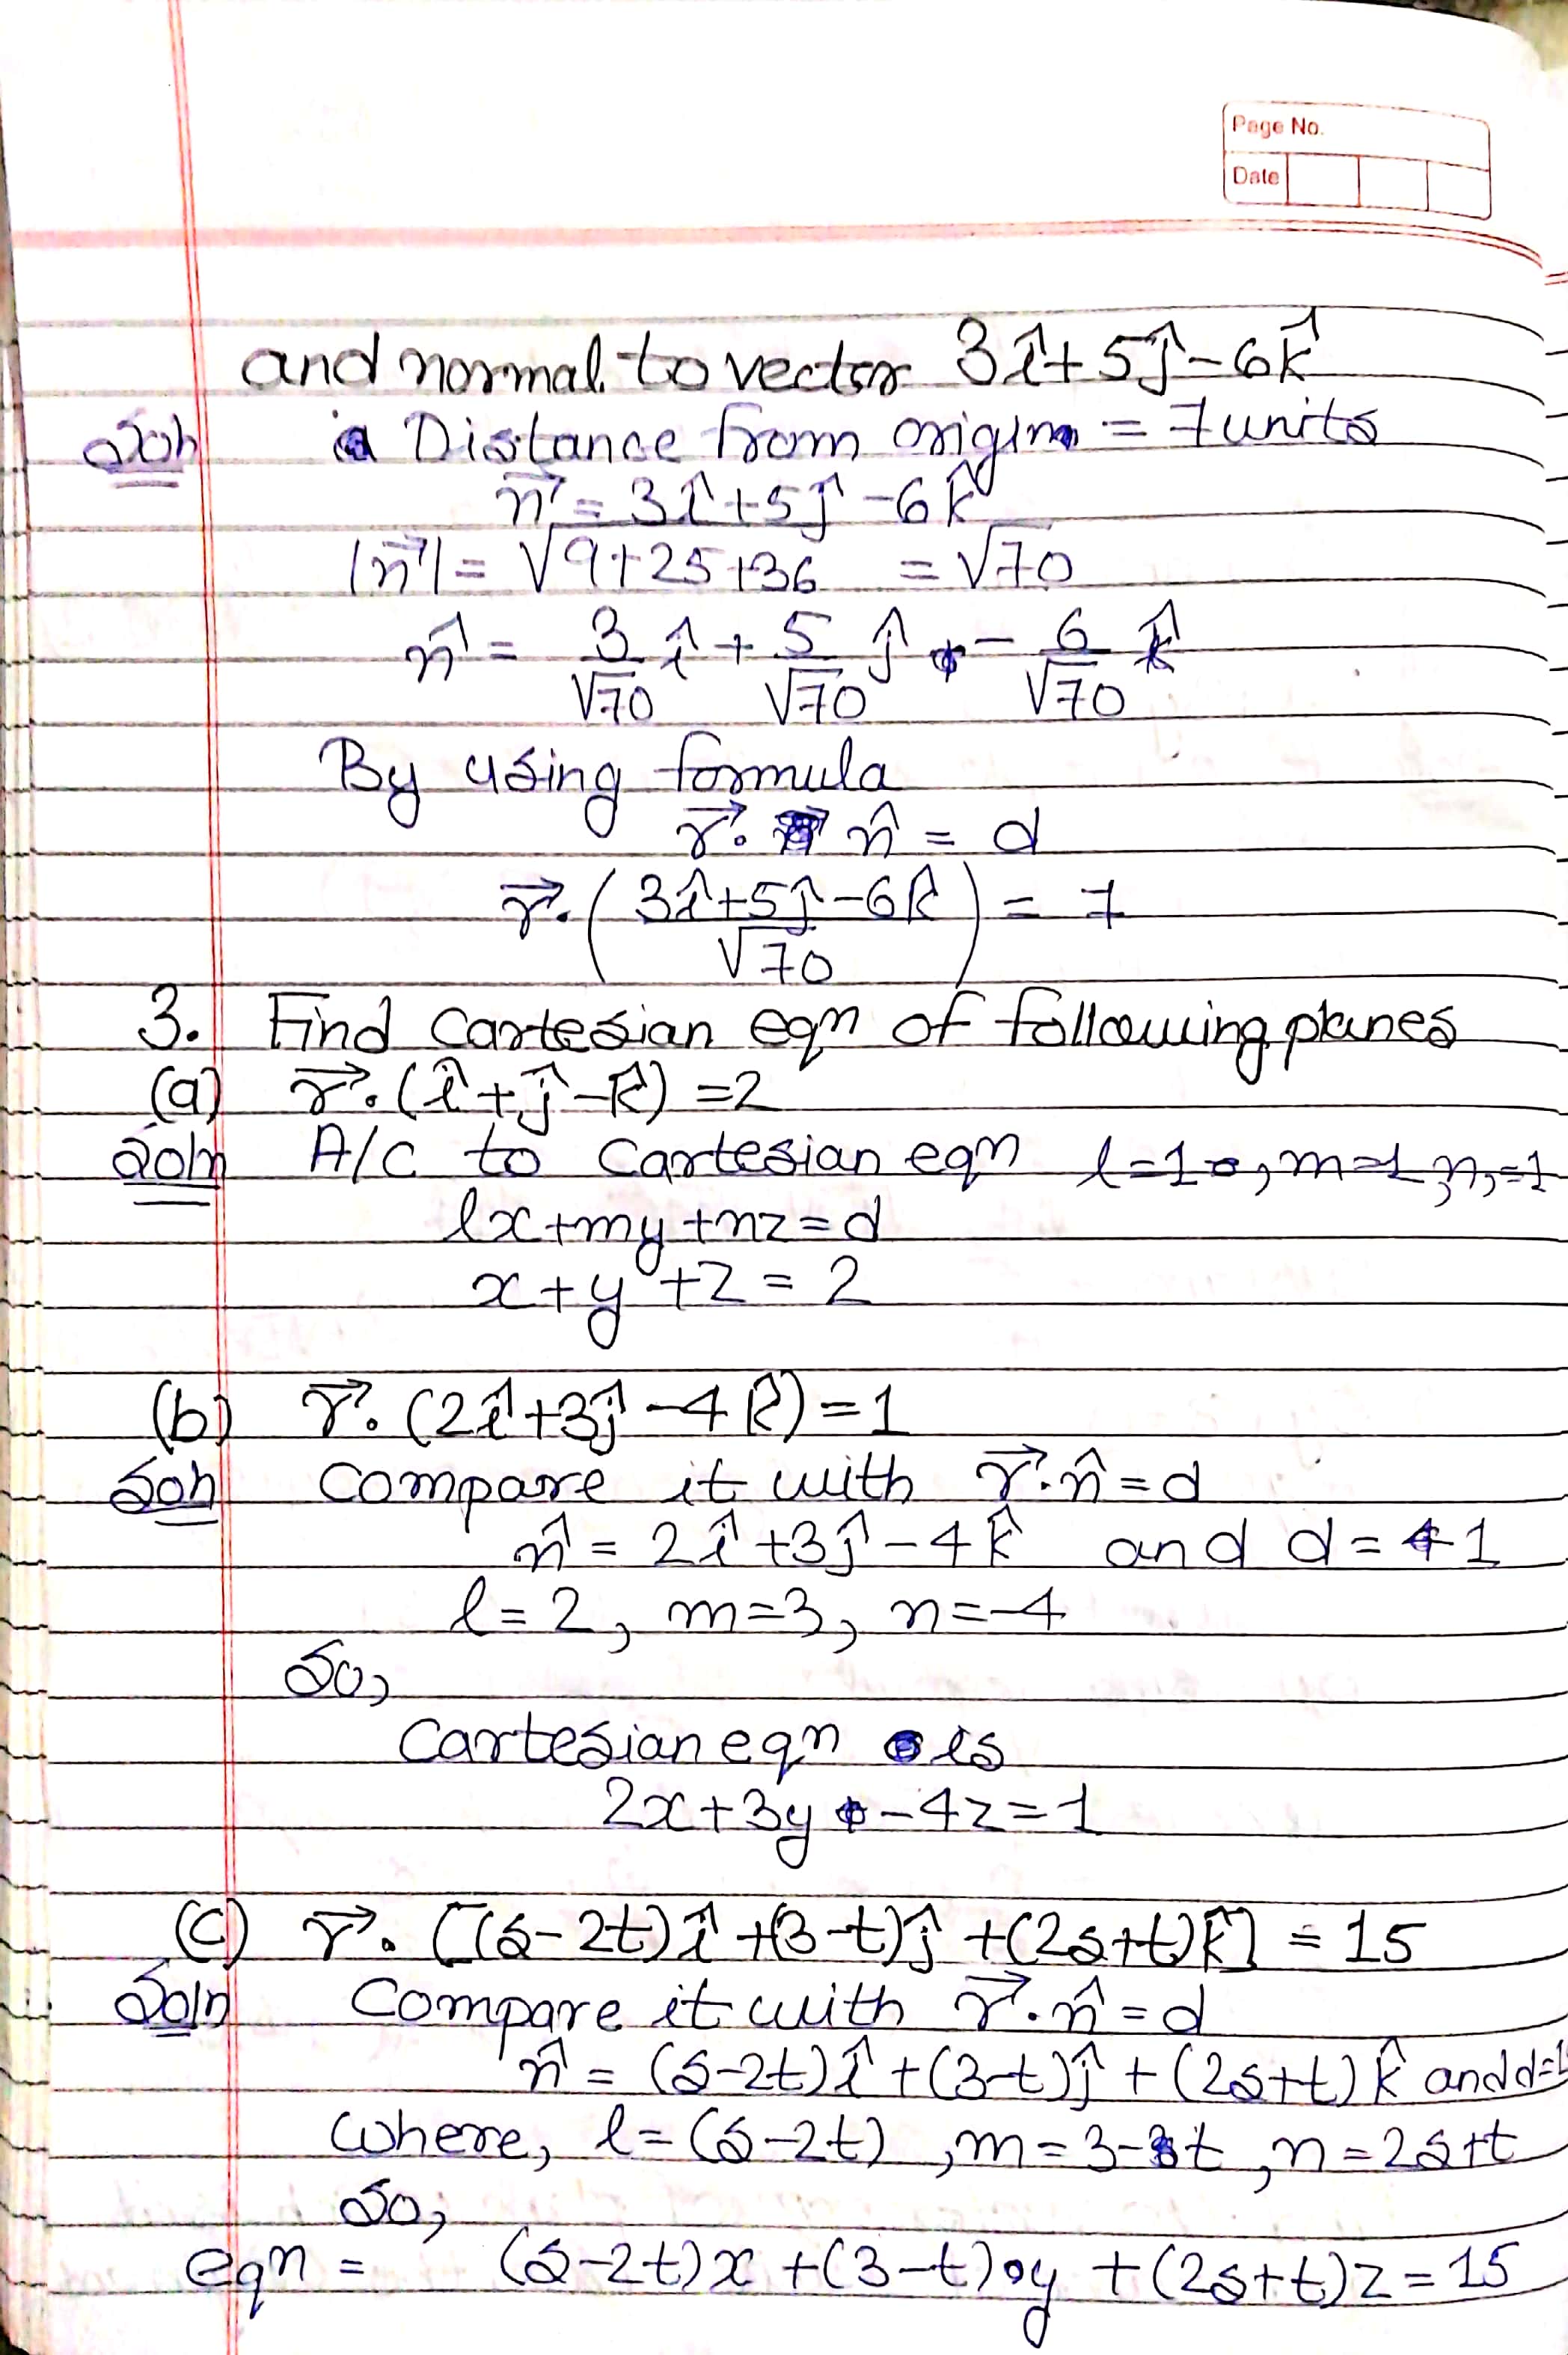 Page No.
Date
and normal to vector 3î + 5ĵ - 6k̂
Soln Distance from origin = 7 units
n⃗ = 3î + 5ĵ - 6k̂
|n⃗| = √9+25+36 = √70
n̂ = 3/√70 î + 5/√70 ĵ - 6/√70 k̂
By using formula
r⃗. n̂ = d
r⃗. (3î+5ĵ-6k̂/√70) = 7
3. Find Cartesian eqn of following planes
(a) r⃗. (î + ĵ - k̂) = 2
Soln A/C to Cartesian eqn l=1, m=1, n=1
lx+my+nz=d
x+y+z=2
(b) r⃗. (2î+3ĵ-4k̂)=1
Soln Compare it with r⃗.n̂=d
n̂ = 2î+3ĵ-4k̂ and d=1
l=2, m=3, n=-4
So,
Cartesian eqn is
2x+3y-4z=1
(c) r⃗. [(s-2t)î+(3-t)ĵ+(2s+t)k̂] = 15
Soln Compare it with r⃗.n̂=d
n̂ = (s-2t)î+(3-t)ĵ+(2s+t)k̂ and d=1
Where, l=(s-2t), m=3-t, n=2s+t
So,
eqn = (s-2t)x+(3-t)y+(2s+t)z=15